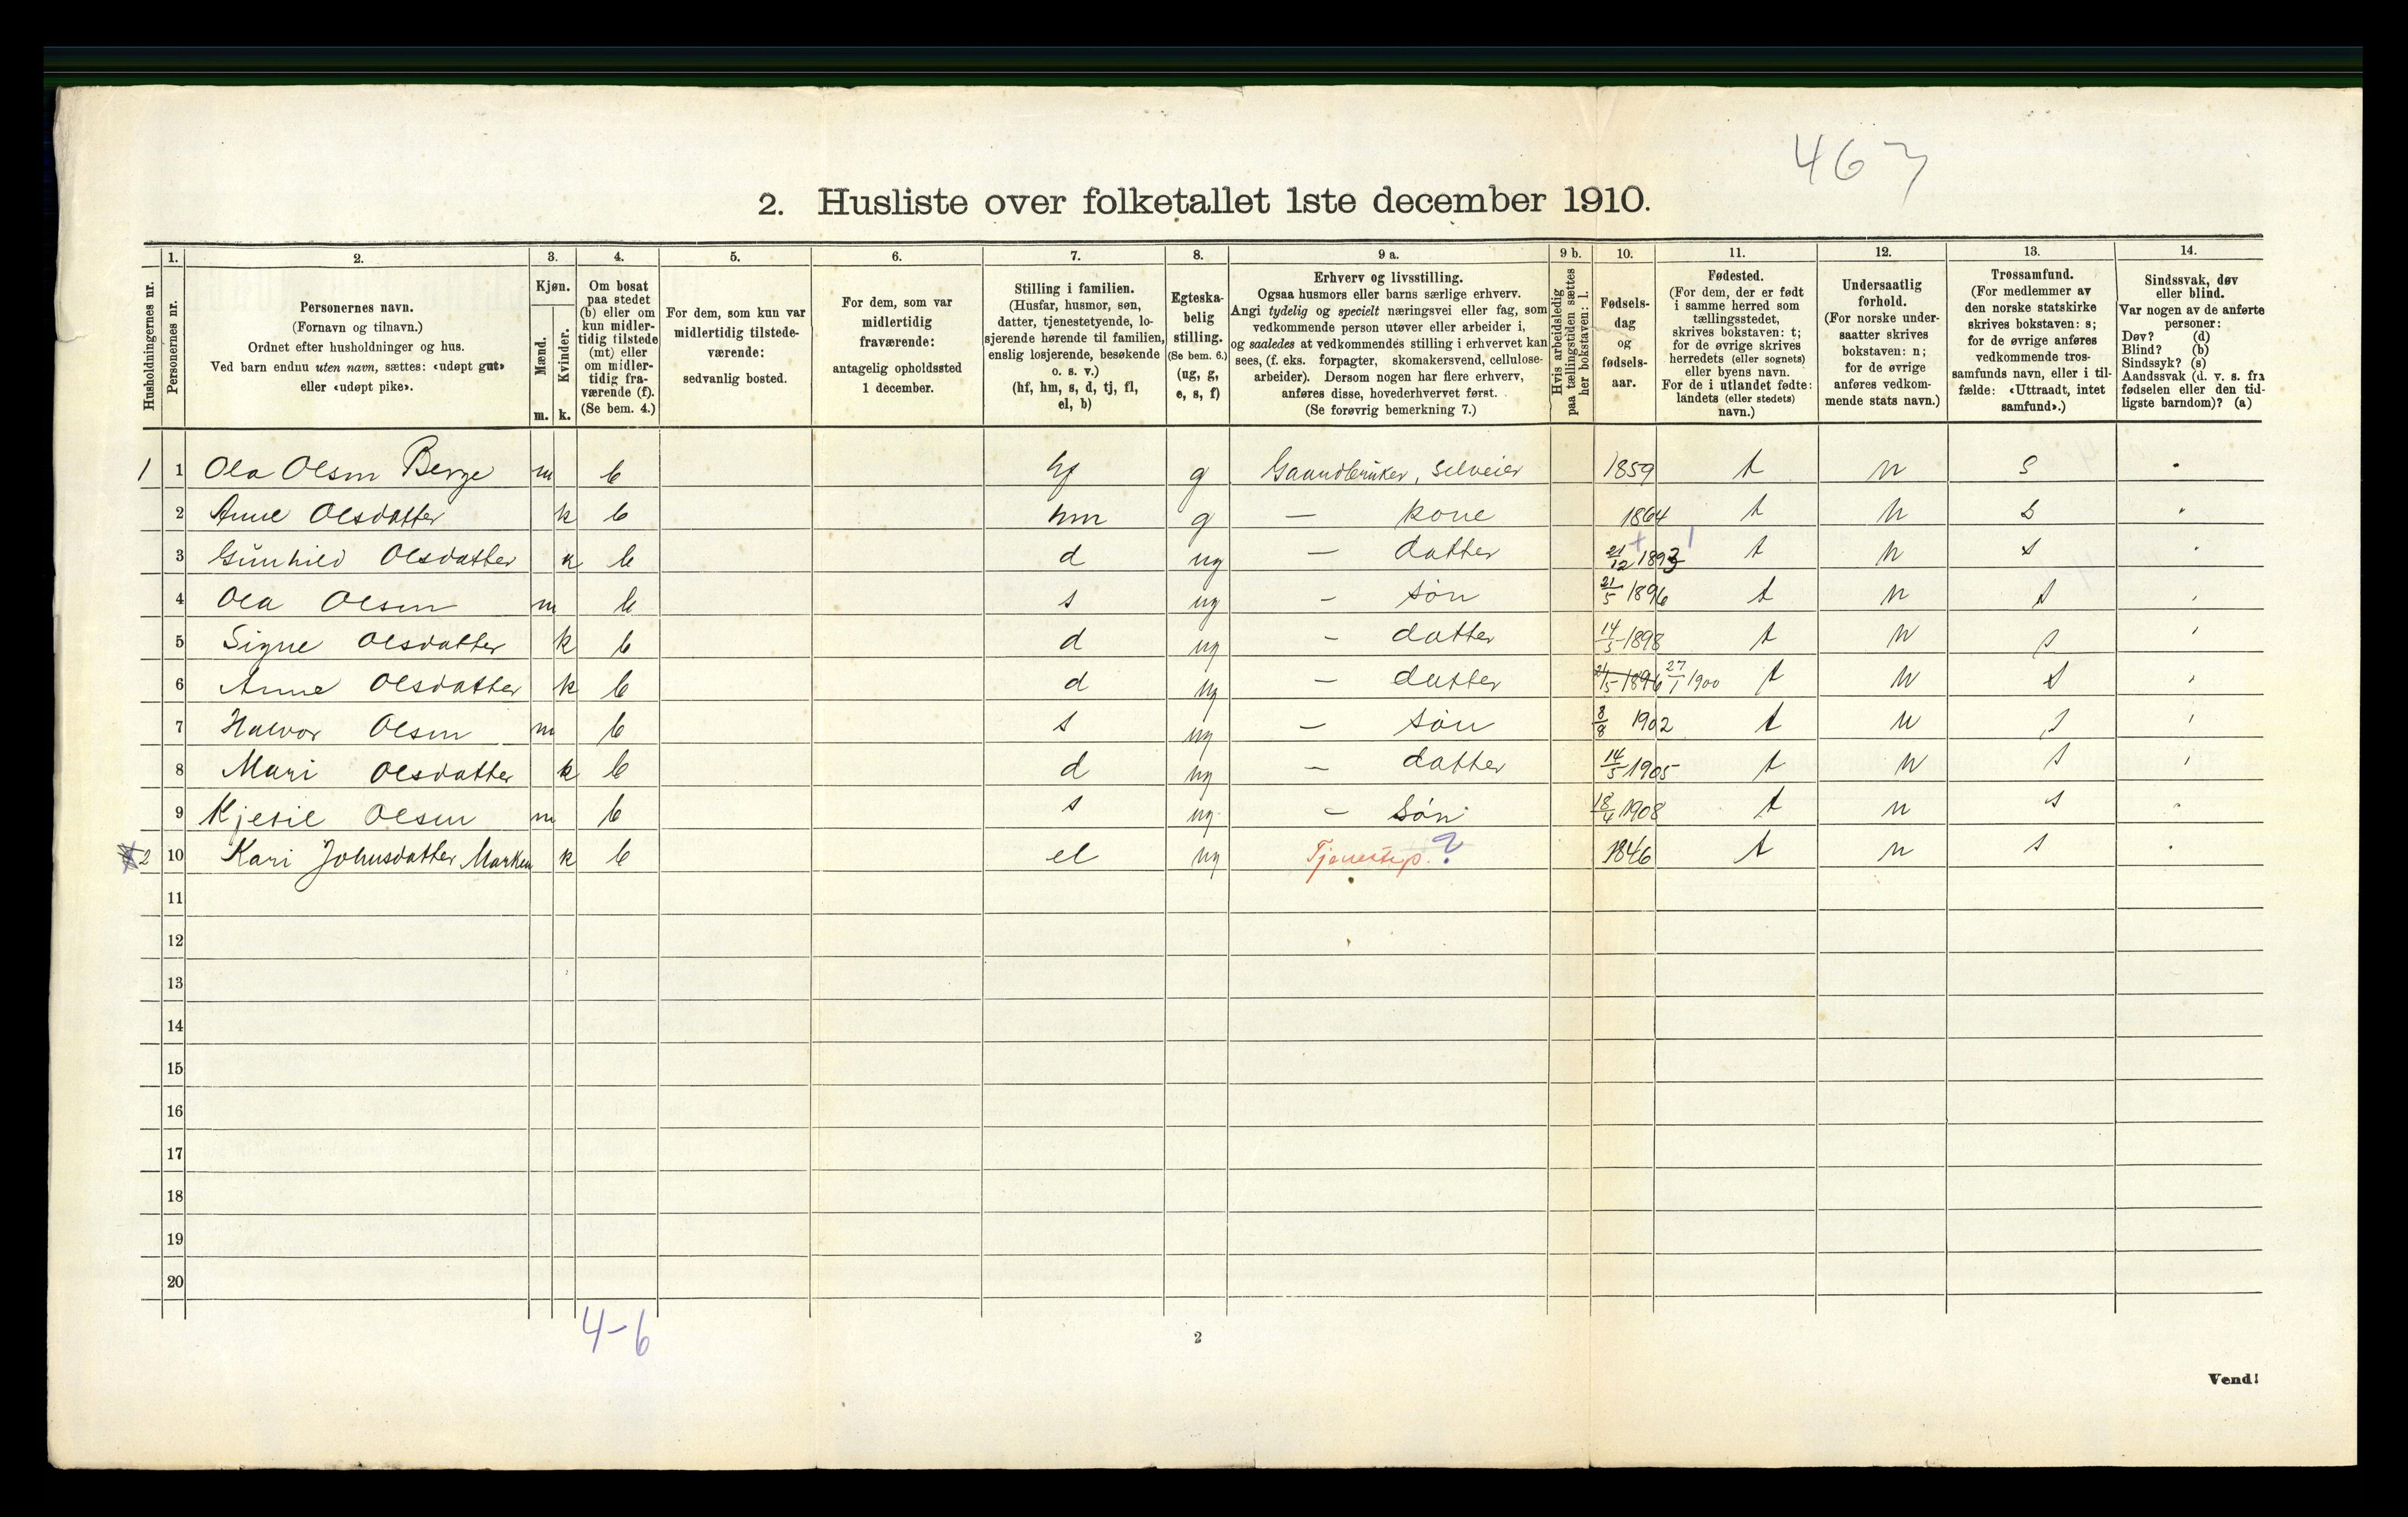 463
2. Husliste over folketallet 1ste december 1910.
Husholdningernes nr.
1.
Personernes nr.
2.
Personernes navn.
(Fornavn og tilnavn.)
Ordnet efter husholdninger og hus.
Ved barn endnu uten navn, sættes: «udøpt gut»
eller «udøpt pike».
3.
Kjøn.
Mænd.
m.
Kvinder.
k.
4.
Om bosat
paa stedet
(b) eller om
kun midler-
tidig tilstede
(mt) eller
om midler-
tidig fra-
værende (f).
(Se bem. 4.)
5.
For dem, som kun var
midlertidig tilstede-
værende:
sedvanlig bosted.
6.
For dem, som var
midlertidig
fraværende:
antagelig opholdssted
1 december.
7.
Stilling i familien.
(Husfar, husmor, søn,
datter, tjenestetyende, lo-
sjerende hørende til familien,
enslig losjerende, besøkende
o. s. v.)
(hf, hm, s, d, tj, fl,
el, b)
8.
Egteska-
belig
stilling.
(Se bem. 6.)
(ug, g,
e, s, f)
9 a.
Erhverv og livsstilling.
Ogsaa husmors eller barns særlige erhverv.
Angi tydelig og specielt næringsvei eller fag, som
vedkommende person utøver eller arbeider i,
og saaledes at vedkommendes stilling i erhvervet kan
sees, (f. eks. forpagter, skomakersvend, cellulose-
arbeider). Dersom nogen har flere erhverv,
anføres disse, hovederhvervet først.
(Se forøvrig bemerkning 7.)
9 b.
Hvis arbeidsledig
paa tællingstiden sættes
her bokstaven: l.
10.
Fødsels-
dag
og
fødsels-
aar.
11.
Fødested.
(For dem, der er født
i samme herred som
tællingsstedet,
skrives bokstaven: t;
for de øvrige skrives
herredets (eller sognets)
eller byens navn.
For de i utlandet fødte:
landets (eller stedets)
navn.)
12.
Undersaatlig
forhold.
(For norske under-
saatter skrives
bokstaven: n;
for de øvrige
anføres vedkom-
mende stats navn.)
13.
Trossamfund.
(For medlemmer av
den norske statskirke
skrives bokstaven: s;
for de øvrige anføres
vedkommende tros-
samfunds navn, eller i til-
fælde: «Uttraadt, intet
samfund».)
14.
Sindssvak, døv
eller blind.
Var nogen av de anførte
personer:
Døv? (d)
Blind? (b)
Sindssyk? (s)
Aandssvak (d. v. s. fra
fødselen eller den tid-
ligste barndom)? (a)
1 1 Ola Olsen Berge m b hf g Gaardbruker, selveier 1859 t n s
2 Anne Olsdatter k b hm g — kone 1864 t n s
3 Gunhild Olsdatter k b d ug — datter 21/12 1893 t n s
4 Ola Olsen m b s ug — søn 21/5 1896 t n s
5 Signe Olsdatter k b d ug — datter 14/5 1898 t n s
6 Anne Olsdatter k b d ug — datter 21/5 1896 27/1 1900 t n s
7 Halvor Olsen m b s ug — søn 8/8 1902 t n s
8 Mari Olsdatter k b d ug — datter 14/5 1905 t n s
9 Kjetil Olsen m b s ug — søn 18/4 1908 t n s
2 10 Kari Johnsdatter Marken k b el ug Tjenestep. ? 1846 t n s
11
12
13
14
15
16
17
18
19
20
4-6
2
Vend!